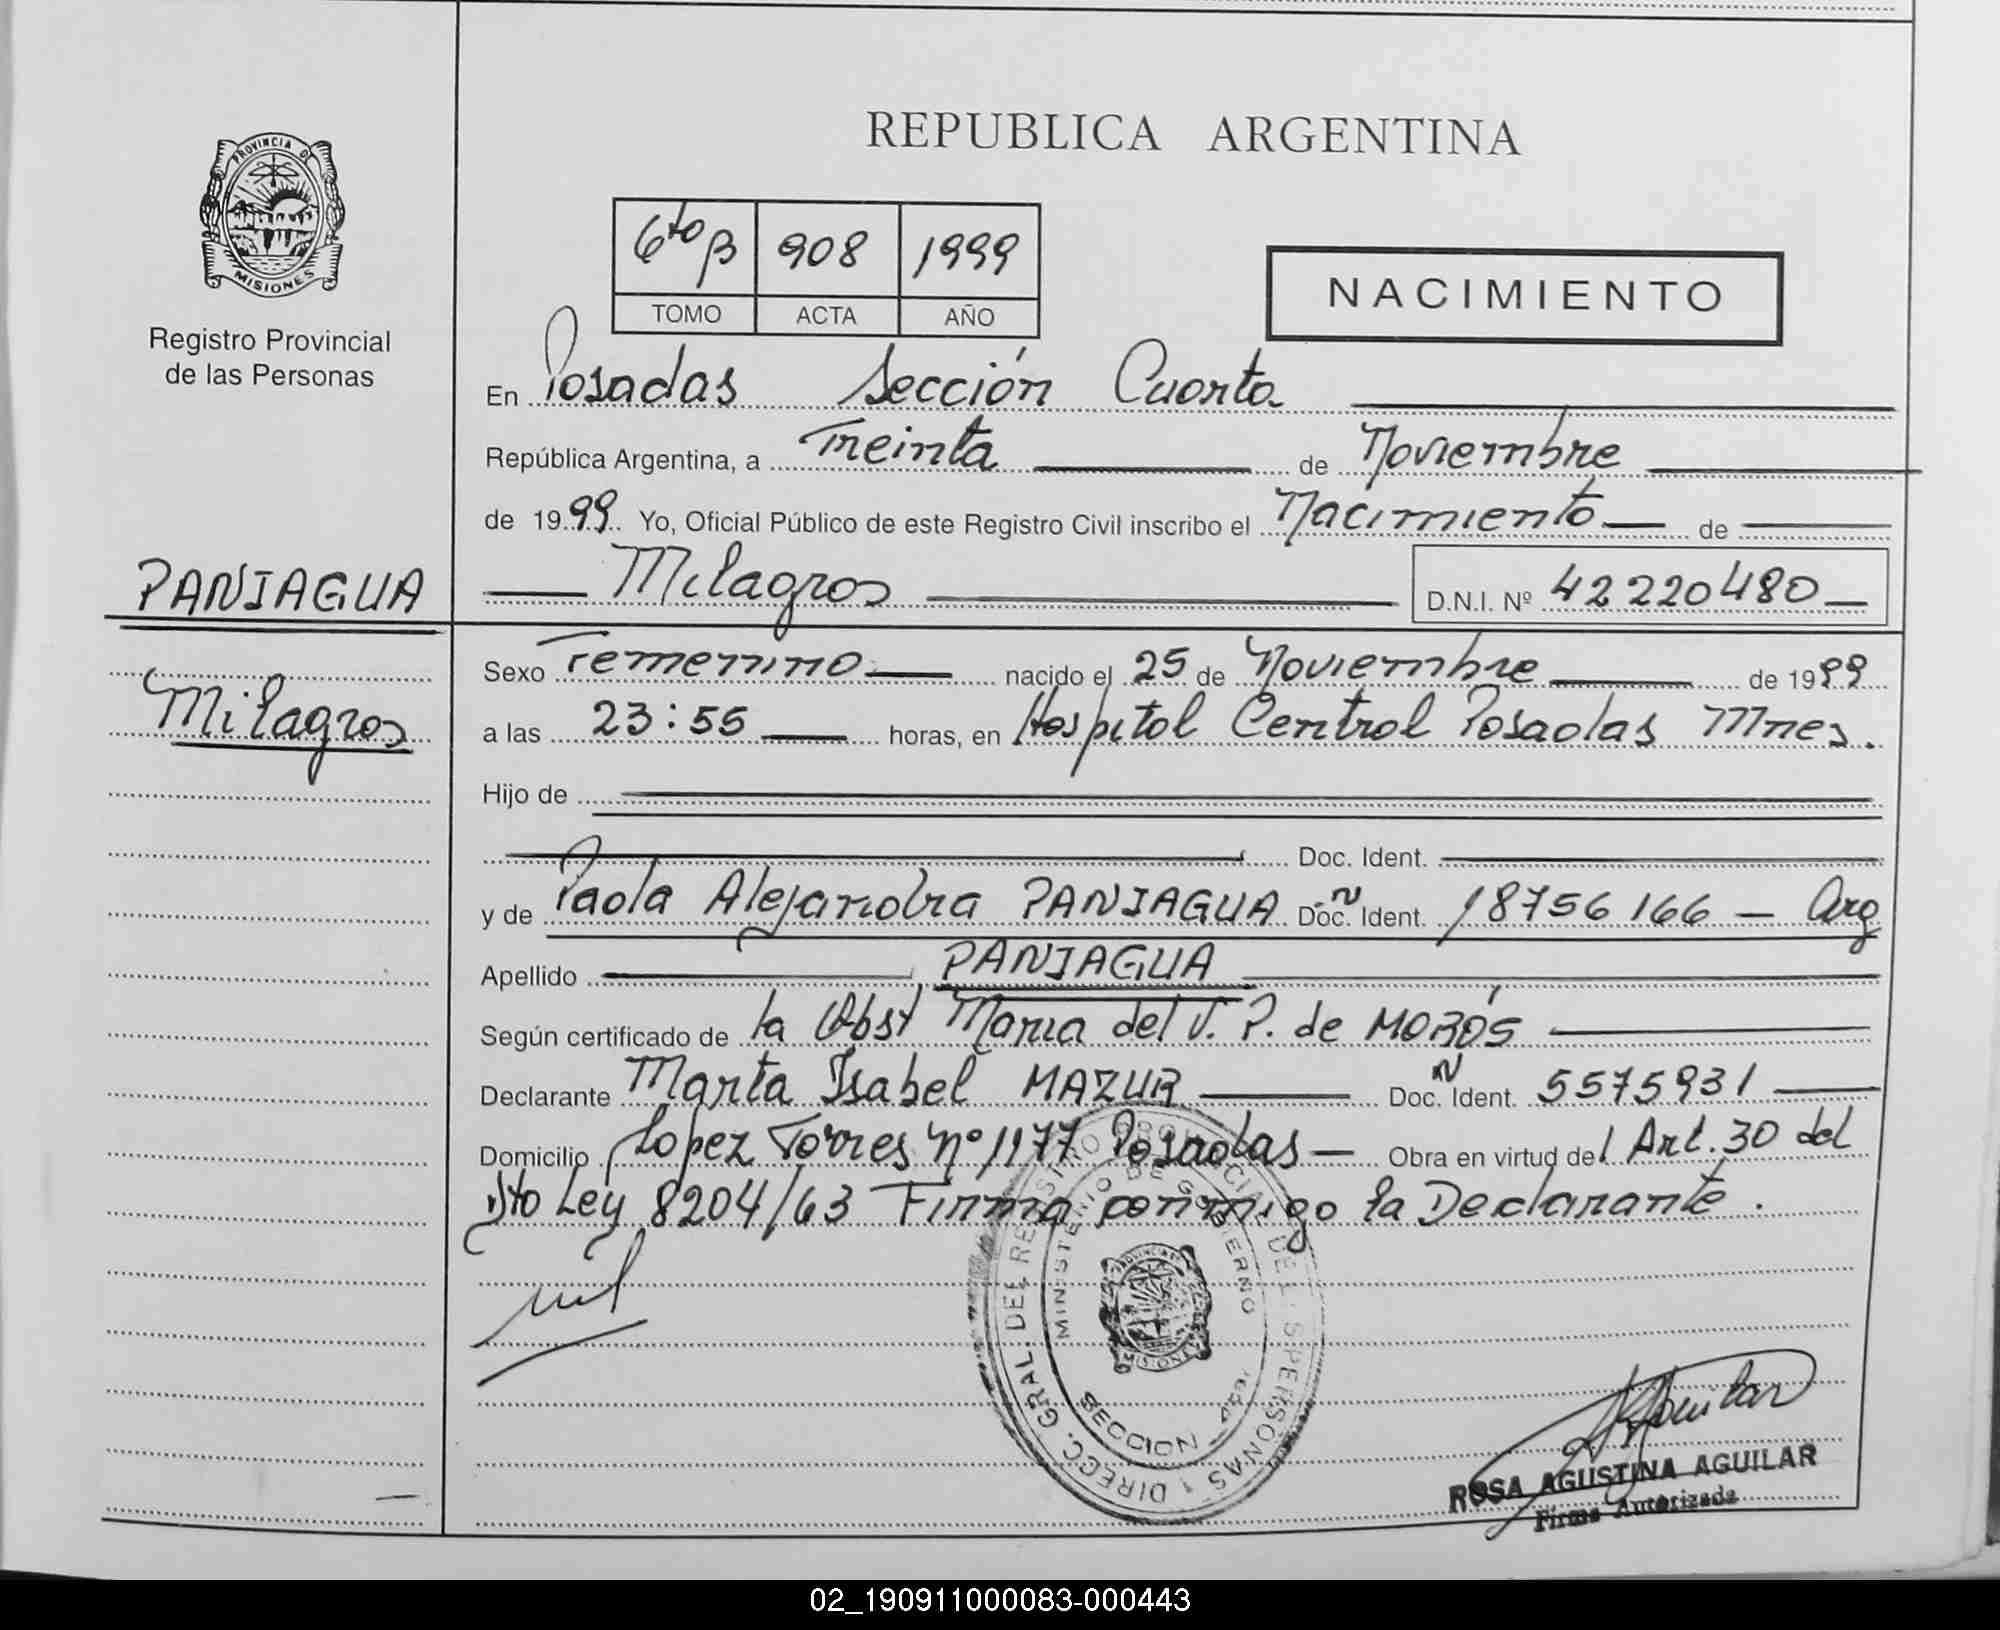 REPUBLICA ARGENTINA
PROVINCIA DE
MISIONES
Registro Provincial
de las Personas
6to B 908 1999
TOMO ACTA AÑO
NACIMIENTO
En Posadas Sección Cuarta
República Argentina, a Treinta de Noviembre
de 1999 Yo, Oficial Público de este Registro Civil inscribo el Nacimiento de
Milagros D.N.I. Nº 42220480
PANIAGUA
Milagros
Sexo Femenino nacido el 25 de Noviembre de 1999
a las 23:55 horas, en Hospital Central Posadas Mnes.
Hijo de
Doc. Ident.
y de Paola Alejandra PANIAGUA Doc. Ident. 18756166 – Arg
Apellido PANIAGUA
Según certificado de la Obst Maria del V. P. de MOROS
Declarante Marta Isabel MAZUR Doc. Ident. 5575931
Domicilio Lopez Torres Nº 1177 Posadas – Obra en virtud del Art. 30 del
Dto Ley 8204/63 Firma conmigo la Declarante.
DIRECC. GRAL. DEL REGISTRO PROVINCIAL DE LAS PERSONAS
MINISTERIO DE GOBIERNO
MISIONES
SECCION 4ta.
ROSA AGUSTINA AGUILAR
Firma Autorizada
02_190911000083-000443